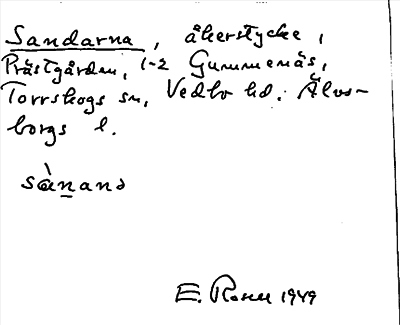 Sandarna, åkerstycke,
Prästgården, 1-2 Gummenäs,
Torrskogs sn, Vedbo hd. Älvs-
borgs l.
sànanə
E. Rosell 1949